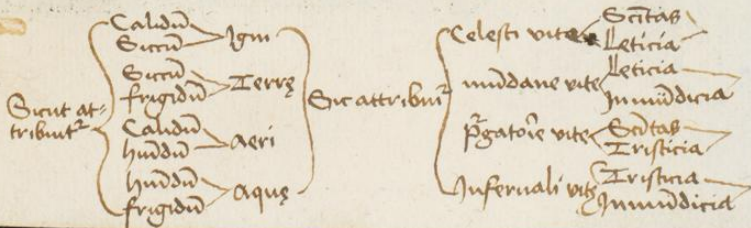 Sicut at-
tribuit᷑
Calidū
Siccū
Igni
Siccū
frigidū
Terrę
Calidū
humidū
Aeri
humidū
frigidū
Aquę
Sic attribuit᷑
Celesti vite
Sc̄itas
Leticia
mūdane vite
Leticia
Inmūdicia
p̄gatorie vite
Sc̄itas
Tristicia
Infernali vitę
Tristicia
Inmūdicia